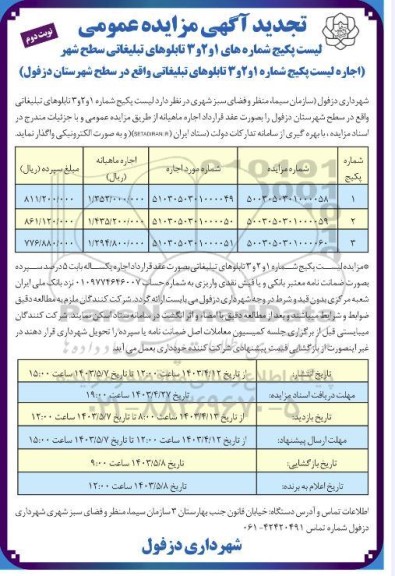 تجدید آگهی مزایده عمومی
نوبت دوم
لیست پکیج شماره های ۱و۲و۳ تابلوهای تبلیغاتی سطح شهر
(اجاره لیست پکیج شماره ۱و۲و۳ تابلوهای تبلیغاتی واقع در سطح شهرستان دزفول)
شهرداری دزفول (سازمان سیما، منظر و فضای سبز شهری در نظر دارد لیست پکیج شماره ۱و۲و۳ تابلوهای تبلیغاتی
واقع در سطح شهرستان دزفول را بصورت عقد قرارداد اجاره ماهیانه از طریق مزایده عمومی و با جزئیات مندرج در
اسناد مزایده، با بهره گیری از سامانه تدارکات دولت (ستاد ایران (SETADIRAN.IR)( و به صورت الکترونیکی واگذار نماید.
شماره پکیج شماره مزایده شماره مورد اجاره اجاره ماهیانه (ریال) مبلغ سپرده (ریال)
۱ ۵۰۰۳۰۵۰۳۰۱۰۰۰۰۵۸ ۵۱۰۳۰۵۰۳۰۱۰۰۰۰۴۹ ۱/۳۵۲/۰۰۰/۰۰۰ ۸۱۱/۲۰۰/۰۰۰
۲ ۵۰۰۳۰۵۰۳۰۱۰۰۰۰۵۹ ۵۱۰۳۰۵۰۳۰۱۰۰۰۰۵۰ ۱/۴۳۵/۲۰۰/۰۰۰ ۸۶۱/۱۲۰/۰۰۰
۳ ۵۰۰۳۰۵۰۳۰۱۰۰۰۰۶۰ ۵۱۰۳۰۵۰۳۰۱۰۰۰۰۵۱ ۱/۲۹۴/۸۰۰/۰۰۰ ۷۷۶/۸۸۰/۰۰۰
*مزایده لیست پکیج شماره ۱و۲و۳ تابلوهای تبلیغاتی بصورت عقد قرارداد اجاره یکساله بابت ۵ درصد سپرده
بصورت ضمانت نامه معتبر بانکی و یا فیش نقدی واریزی به شماره حساب ۰۱۰۹۷۷۴۶۴۶۰۰۷ نزد بانک ملی ایران
شعبه مرکزی بدون قید و شرط در وجه شهرداری دزفول می بایست ارائه گردد. شرکت کنندگان ملزم به مطالعه دقیق
ضوابط و شرایط میباشند و بعد از مطالعه دقیق با امضاء و اثر انگشت در سامانه ستاد اسکن نمایند. شرکت کنندگان
میبایستی قبل از برگزاری جلسه کمیسیون معاملات اصل ضمانت نامه یا سپرده را تحویل شهرداری قرار دهند در
غیر اینصورت از بازگشایی قیمت پیشنهادی شرکت کننده خودداری بعمل می آید.
تاریخ انتشار: از تاریخ ۱۴۰۳/۴/۱۲ ساعت ۱۲:۰۰ تا تاریخ ۱۴۰۳/۵/۷ ساعت ۱۵:۰۰
مهلت دریافت اسناد مزایده: تاریخ ۱۴۰۳/۴/۲۷ ساعت ۱۹:۰۰
تاریخ بازدید: از تاریخ ۱۴۰۳/۴/۱۳ ساعت ۸:۰۰ تا تاریخ ۱۴۰۳/۵/۷ ساعت ۱۲:۰۰
مهلت ارسال پیشنهاد: از تاریخ ۱۴۰۳/۴/۱۲ ساعت ۱۲:۰۰ تا تاریخ ۱۴۰۳/۵/۷ ساعت ۱۵:۰۰
تاریخ بازگشایی: تاریخ ۱۴۰۳/۵/۸ ساعت ۹:۰۰
تاریخ اعلام به برنده: تاریخ ۱۴۰۳/۵/۸ ساعت ۱۲:۰۰
اطلاعات تماس و آدرس دستگاه: خیابان قانون جنب بهارستان ۳ سازمان سیما، منظر و فضای سبز شهری شهرداری
دزفول شماره تماس ۴۲۴۲۰۴۹۱-۰۶۱
شهرداری دزفول